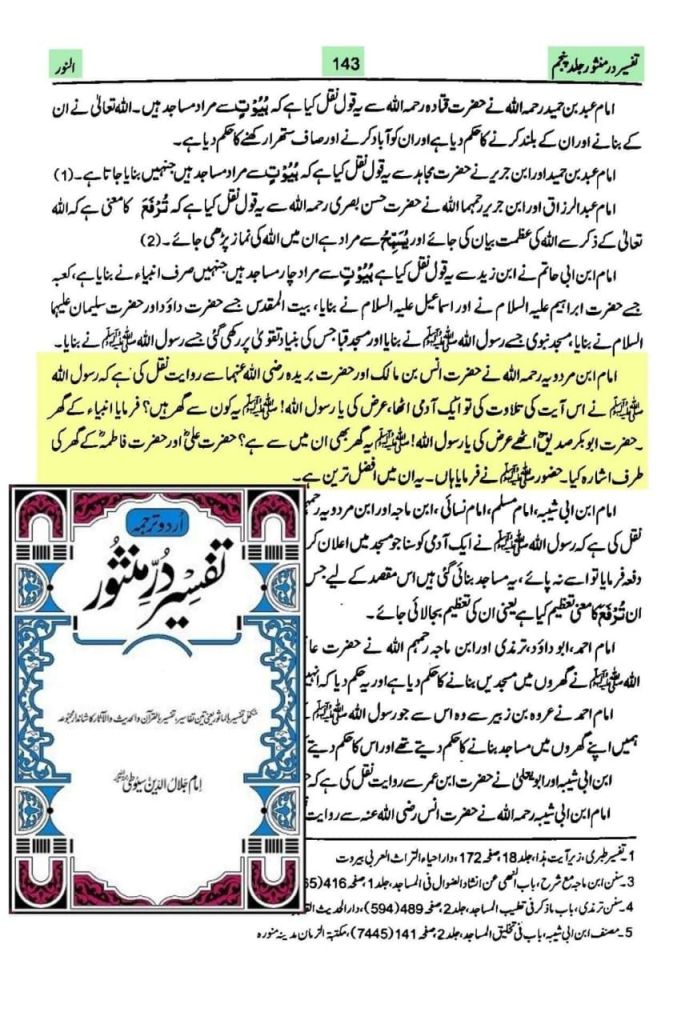 تفسیر درمنثور جلد پنجم
143
النور
امام عبد بن حمید رحمہ اللہ نے حضرت قتادہ رحمہ اللہ سے یہ قول نقل کیا ہے کہ بُیُوْتٍ سے مراد مساجد ہیں۔ اللہ تعالیٰ نے ان
کے بنانے اور ان کے بلند کرنے کا حکم دیا ہے اور ان کو آباد کرنے اور صاف ستھرا رکھنے کا حکم دیا ہے۔
امام عبد بن حمید اور ابن جریر نے حضرت مجاہد سے یہ قول نقل کیا ہے کہ بُیُوْتٍ سے مراد مساجد ہیں جنہیں بنایا جاتا ہے۔(1)
امام عبدالرزاق اور ابن جریر رحمہما اللہ نے حضرت حسن بصری رحمہ اللہ سے یہ قول نقل کیا ہے کہ تُرْفَعَ کا معنی ہے کہ اللہ
تعالیٰ کے ذکر سے اللہ کی عظمت بیان کی جائے اور یُسَبِّحُ سے مراد ہے ان میں اللہ کی نماز پڑھی جائے۔(2)
امام ابن ابی حاتم نے ابن زید سے یہ قول نقل کیا ہے بُیُوْتٍ سے مراد چار مساجد ہیں جنہیں صرف انبیاء نے بنایا ہے، کعبہ
جسے حضرت ابراہیم علیہ السلام نے اور اسماعیل علیہ السلام نے بنایا، بیت المقدس جسے حضرت داؤد اور حضرت سلیمان علیہما
السلام نے بنایا، مسجد نبوی جسے رسول اللہ ﷺ نے بنایا اور مسجد قبا جس کی بنیاد تقویٰ پر رکھی گئی جسے رسول اللہ ﷺ نے بنایا۔
امام ابن مردویہ رحمہ اللہ نے حضرت انس بن مالک اور حضرت بریدہ رضی اللہ عنہما سے روایت نقل کی ہے کہ رسول اللہ
ﷺ نے اس آیت کی تلاوت کی تو ایک آدمی اٹھا، عرض کی یا رسول اللہ! ﷺ یہ کون سے گھر ہیں؟ فرمایا انبیاء کے گھر
۔ حضرت ابوبکر صدیقؓ اٹھے عرض کی یا رسول اللہ! ﷺ یہ گھر بھی ان میں سے ہے؟ حضرت علیؓ اور حضرت فاطمہؓ کے گھر کی
طرف اشارہ کیا۔ حضور ﷺ نے فرمایا ہاں۔ یہ ان میں افضل ترین ہے۔
امام ابن ابی شیبہ، امام مسلم، امام نسائی، ابن ماجہ اور ابن مردویہ
نقل کی ہے کہ رسول اللہ ﷺ نے ایک آدمی کو سنا جو مسجد میں اعلان کر
دفعہ فرمایا تو اسے نہ پائے، یہ مساجد بنائی گئی ہیں اس مقصد کے لیے جس
ان تُرْفَعَ کا معنی تعظیم کیا ہے یعنی ان کی تعظیم بجالائی جائے۔
امام احمد، ابوداؤد، ترمذی اور ابن ماجہ رحمہم اللہ نے حضرت
اللہ ﷺ نے گھروں میں مسجدیں بنانے کا حکم دیا ہے اور یہ حکم دیا کہ انہیں
امام احمد نے عروہ بن زبیر سے وہ اس سے جو رسول اللہ ﷺ
ہمیں اپنے گھروں میں مساجد بنانے کا حکم دیتے تھے اور اس کا حکم دیتے
ابن ابی شیبہ اور ابو یعلیٰ نے حضرت ابن عمر سے روایت نقل کی ہے کہ
امام ابن ابی شیبہ رحمہ اللہ نے حضرت انس رضی اللہ عنہ سے روایت
1۔ تفسیر طبری، زیر آیت ہذا، جلد 18 صفحہ 172، دار احیاء التراث العربی بیروت
3۔ سنن ابن ماجہ مع شرح، باب النہی عن انشاد الضوال فی المساجد، جلد 1 صفحہ 416
4۔ سنن ترمذی، باب ماذکر فی تطییب المساجد، جلد 2، صفحہ 489 (594)، دار الحدیث
5۔ مصنف ابن ابی شیبہ، باب فی تخلیق المساجد، جلد 2، صفحہ 141 (7445)، مکتبۃ الزمان مدینہ منورہ
اُردو ترجمہ
تفسیر دُرِّ منثور
مکمل تفسیر بالماثور یعنی تین تفاسیر، تفسیر بالقرآن والحدیث والآثار کا شاندار مجموعہ
امام جلال الدین سیوطی